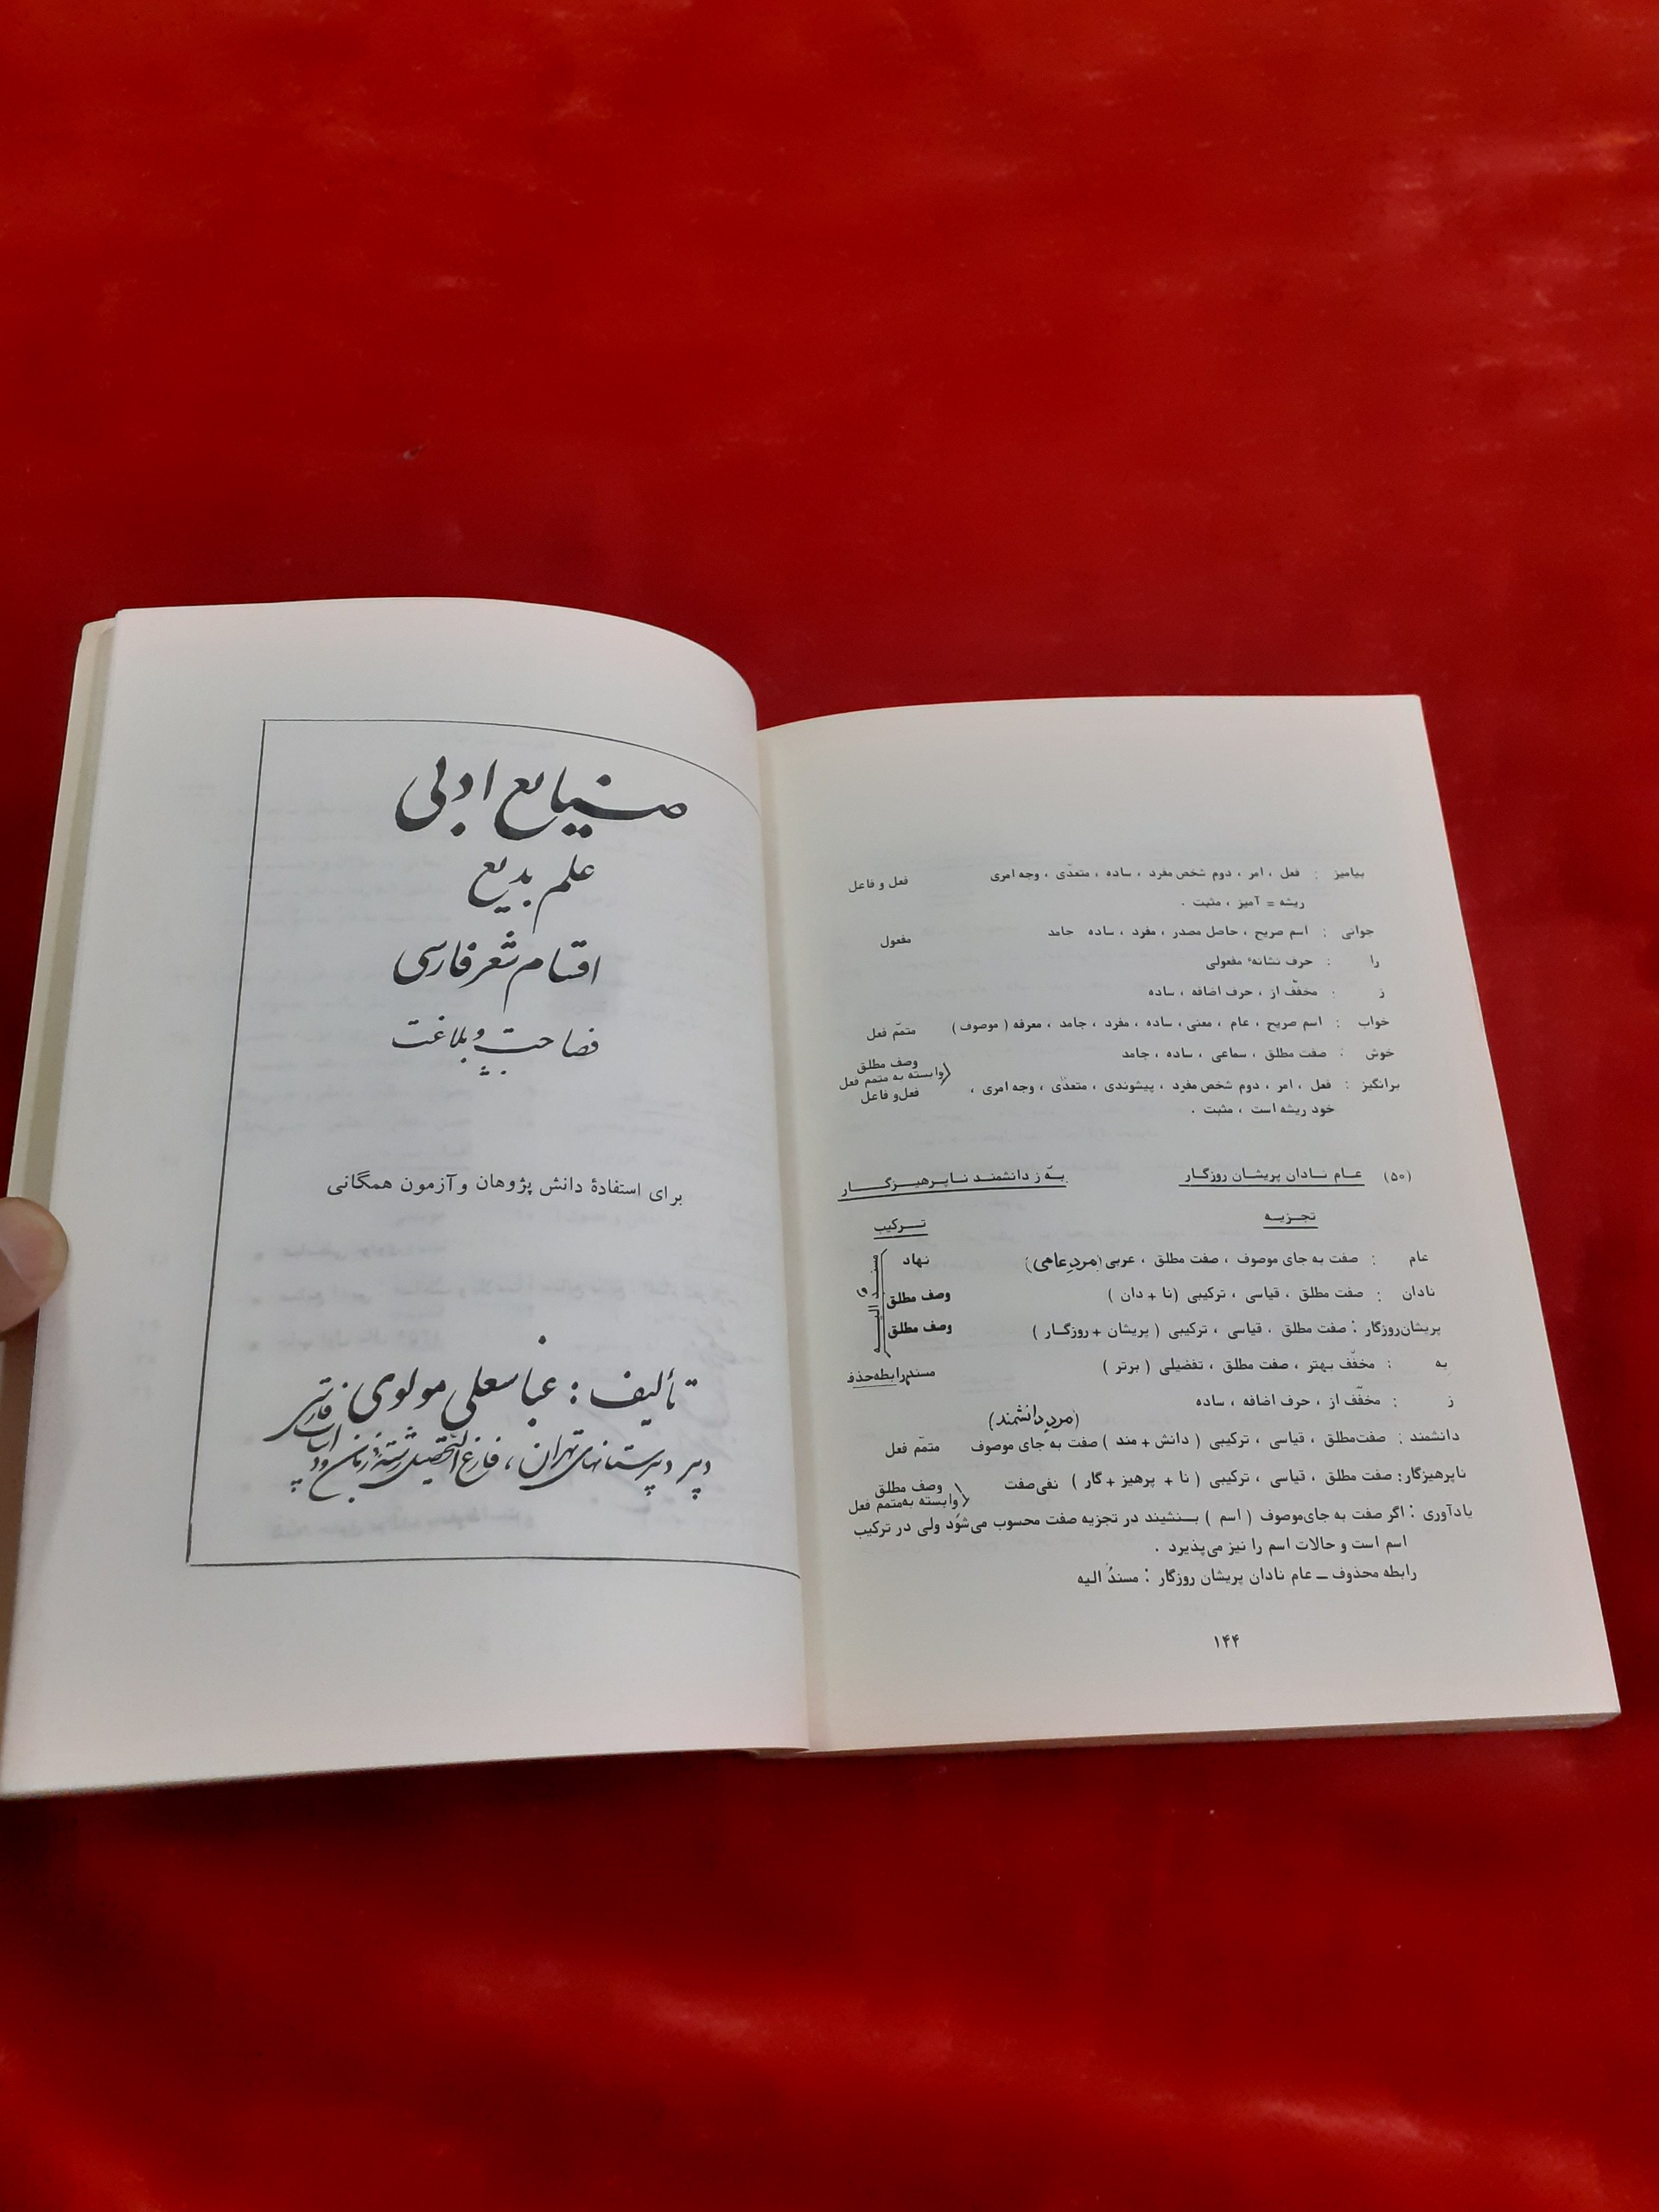 بیامیز : فعل ، امر ، دوم شخص مفرد ، ساده ، متعدّی ، وجه امری فعل و فاعل
ریشه = آمیز ، مثبت .
جوانی : اسم صریح ، حاصل مصدر ، مفرد ، ساده جامد مفعول
را : حرف نشانهٔ مفعولی
ز : مخفّف از ، حرف اضافه ، ساده
خواب : اسم صریح ، عام ، معنی ، ساده ، مفرد ، جامد ، معرفه ( موصوف ) متمّم فعل
خوش : صفت مطلق ، سماعی ، ساده ، جامد وصف مطلق
وابسته به متمم فعل
برانگیز : فعل ، امر ، دوم شخص مفرد ، پیشوندی ، متعدّی ، وجه امری ، فعل و فاعل
خود ریشه است ، مثبت .
(۵۰) عام نادان پریشان روزگار به ز دانشمند ناپرهیزگار
تجزیه ترکیب
عام : صفت به جای موصوف ، صفت مطلق ، عربی (مردِ عامی) نهاد
نادان : صفت مطلق ، قیاسی ، ترکیبی (نا + دان ) وصف مطلق
پریشان‌روزگار : صفت مطلق ، قیاسی ، ترکیبی ( پریشان + روزگار ) وصف مطلق
به : مخفّف بهتر ، صفت مطلق ، تفضیلی ( برتر ) مسند رابطه حذف
ز : مخفّف از ، حرف اضافه ، ساده
(مردِ دانشمند)
دانشمند : صفت‌مطلق ، قیاسی ، ترکیبی ( دانش + مند ) صفت به جای موصوف متمّم فعل
ناپرهیزگار: صفت مطلق ، قیاسی ، ترکیبی ( نا + پرهیز + گار ) نفی‌صفت وصف مطلق
وابسته به‌متمم فعل
یادآوری : اگر صفت به جای‌موصوف ( اسم ) بنشیند در تجزیه صفت محسوب می‌شود ولی در ترکیب
اسم است و حالات اسم را نیز می‌پذیرد .
رابطه محذوف ـ عام نادان پریشان روزگار : مسندُ الیه
۱۴۴
صنایع ادبی
علم بدیع
اقسام شعر فارسی
فصاحت و بلاغت
برای استفادهٔ دانش پژوهان و آزمون همگانی
تألیف : عباسعلی مولوی
دبیر دبیرستانهای تهران ، فارغ التحصیل رشتهٔ زبان و ادبیات فارسی